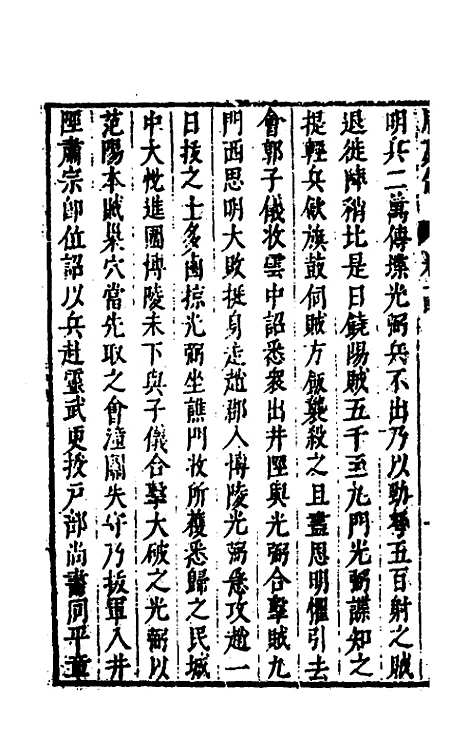 明兵二萬傳堞光弼兵不出乃以勁弩五百射之賊
退徙陣稍比是日饒陽賊五千至九門光弼諜知之
提輕兵歛旗鼓伺賊方飯襲殺之且盡思明懼引去
會郭子儀收雲中詔悉衆出井陘與光弼合擊賊九
門西思明大敗挺身走趙郡入博陵光弼急攻趙一
日拔之士多鹵掠光弼坐譙門收所獲悉歸之民城
中大悅進圍博陵未下與子儀合擊大破之光弼以
范陽本賊巢穴當先取之會潼關失守乃拔軍入井
陘肅宗即位詔以兵赴靈武更授戶部尚書同平章